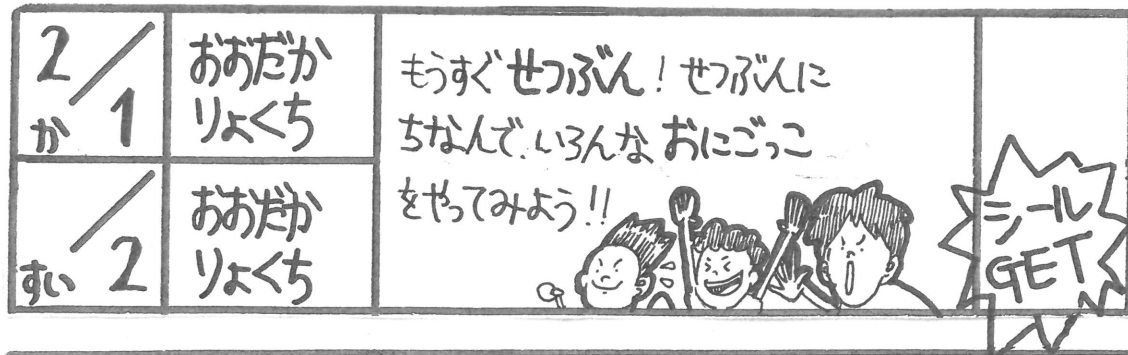 2/1
か
おおだか
りょくち
もうすぐせつぶん！せつぶんに
ちなんで、いろんなおにごっこ
をやってみよう!!
/2
すい
おおだか
りょくち
シール
GET